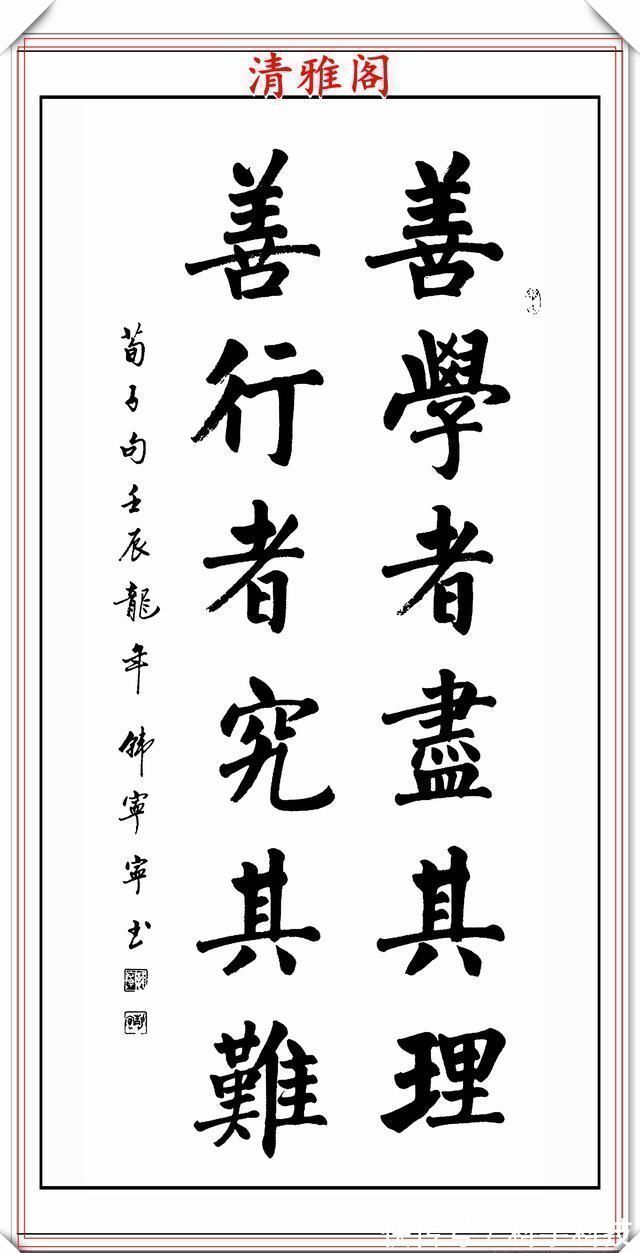 清雅阁
善學者盡其理
善行者究其難
荀子句壬辰龍年韓寧寧书